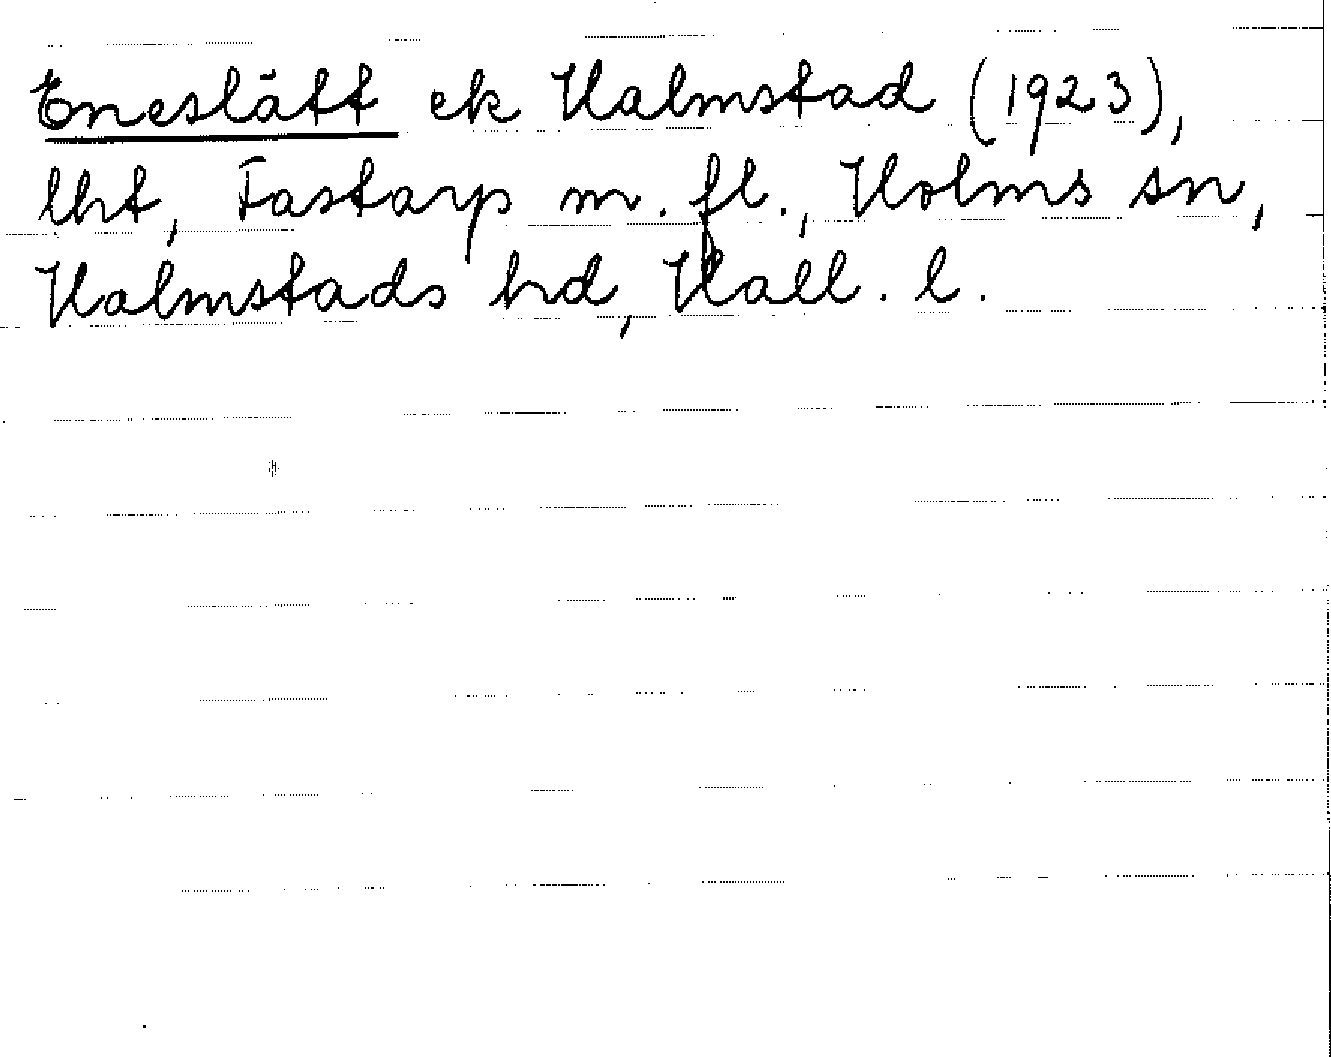 Eneslätt ek Halmstad (1923),
lht, Fastarp m. fl., Holms sn,
Halmstads hd, Hall. l.